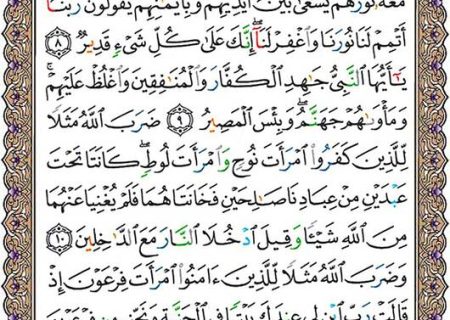 مَعَهُۥ نُورُهُمْ يَسْعَىٰ بَيْنَ أَيْدِيهِمْ وَبِأَيْمَٰنِهِمْ يَقُولُونَ رَبَّنَآ
أَتْمِمْ لَنَا نُورَنَا وَٱغْفِرْ لَنَآ ۖ إِنَّكَ عَلَىٰ كُلِّ شَىْءٍ قَدِيرٌ ٨
يَٰٓأَيُّهَا ٱلنَّبِىُّ جَٰهِدِ ٱلْكُفَّارَ وَٱلْمُنَٰفِقِينَ وَٱغْلُظْ عَلَيْهِمْ ۚ
وَمَأْوَىٰهُمْ جَهَنَّمُ ۖ وَبِئْسَ ٱلْمَصِيرُ ٩ ضَرَبَ ٱللَّهُ مَثَلًا
لِّلَّذِينَ كَفَرُوا۟ ٱمْرَأَتَ نُوحٍ وَٱمْرَأَتَ لُوطٍ ۖ كَانَتَا تَحْتَ
عَبْدَيْنِ مِنْ عِبَادِنَا صَٰلِحَيْنِ فَخَانَتَاهُمَا فَلَمْ يُغْنِيَا عَنْهُمَا
مِنَ ٱللَّهِ شَيْـًٔا وَقِيلَ ٱدْخُلَا ٱلنَّارَ مَعَ ٱلدَّٰخِلِينَ ١٠
وَضَرَبَ ٱللَّهُ مَثَلًا لِّلَّذِينَ ءَامَنُوا۟ ٱمْرَأَتَ فِرْعَوْنَ إِذْ
قَالَتْ رَبِّ ٱبْنِ لِى عِندَكَ بَيْتًا فِى ٱلْجَنَّةِ وَنَجِّنِى مِن فِرْعَوْنَ